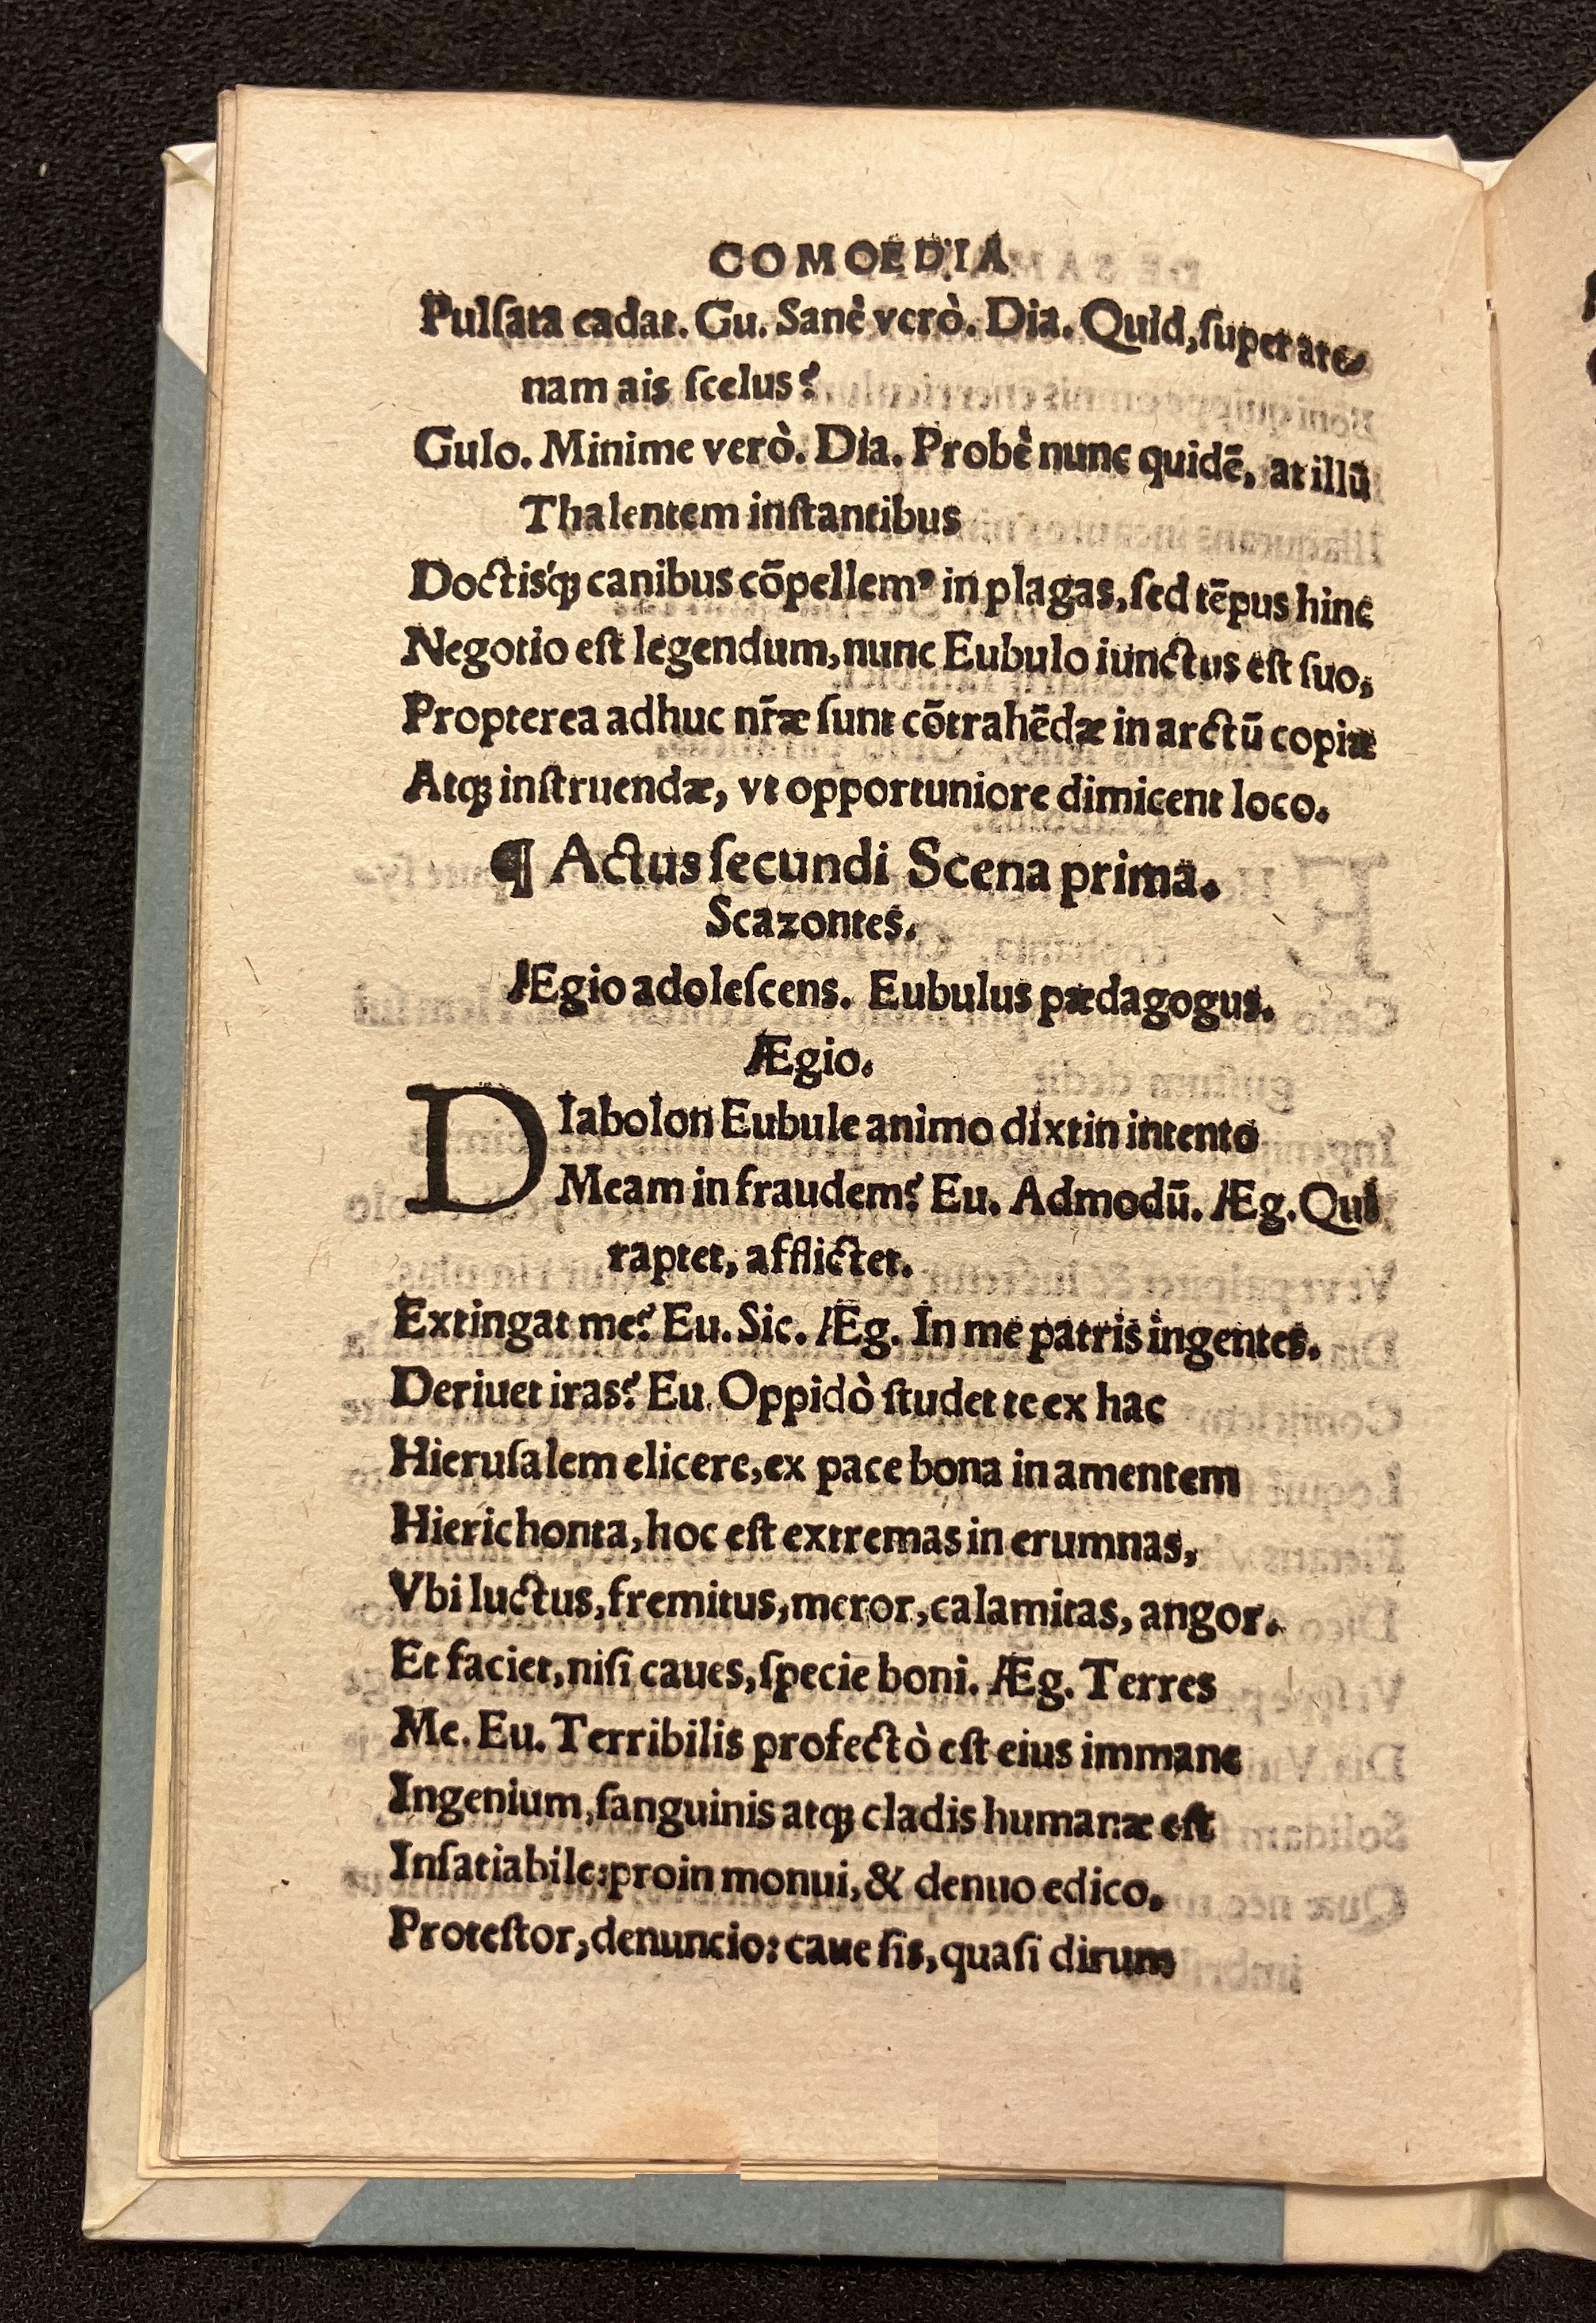 COMOEDIA
Pulſata cadat. Gu. Sanè verò. Dia. Quid, ſuper are-
nam ais ſcelus?
Gulo. Minime verò. Dia. Probè nunc quidē, at illū
Thalentem inſtantibus
Doctisq́; canibus cōpellemꝰ in plagas, ſed tēpus hinc
Negotio eſt legendum, nunc Eubulo iunctus eſt ſuo,
Propterea adhuc nr̄æ ſunt cōtrahēdæ in arctū copiæ
Atq; inſtruendæ, vt opportuniore dimicent loco.
¶ Actus ſecundi Scena prima.
Scazontes.
Ægio adoleſcens. Eubulus pædagogus.
Ægio.
DIabolon Eubule animo dixtin intento
Meam in fraudem? Eu. Admodū. Æg. Qui
raptet, afflictet.
Extingat me? Eu. Sic. Æg. In me patris ingentes.
Deriuet iras? Eu. Oppidò ſtudet te ex hac
Hieruſalem elicere, ex pace bona in amentem
Hierichonta, hoc eſt extremas in erumnas,
Vbi luctus, fremitus, meror, calamitas, angor.
Et faciet, niſi caues, ſpecie boni. Æg. Terres
Me. Eu. Terribilis profectò eſt eius immane
Ingenium, ſanguinis atq; cladis humanæ eſt
Inſatiabile: proin monui, & denuo edico.
Proteſtor, denuncio: caue ſis, quaſi dirum